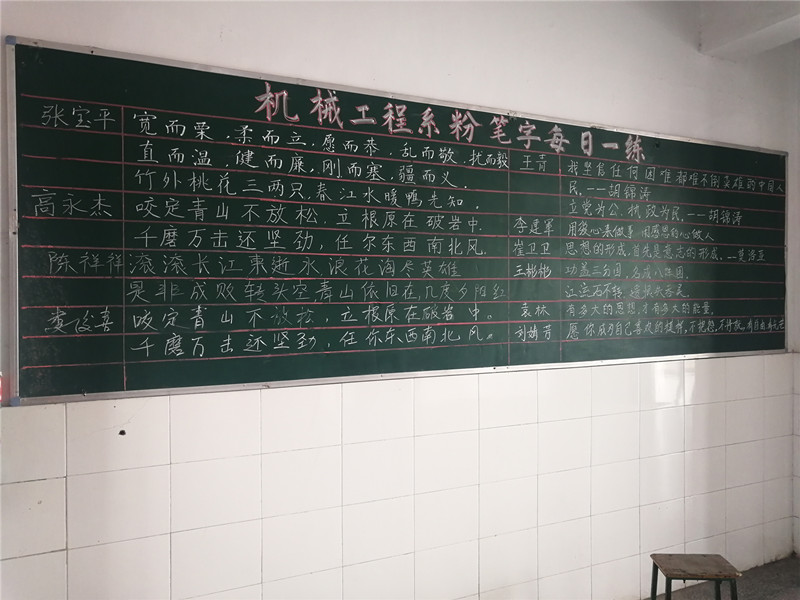 机械工程系粉笔字每日一练
张宝平
宽而栗，柔而立，愿而恭，乱而敬，扰而毅
直而温，健而廉，刚而塞，疆而义，
竹外桃花三两只，春江水暖鸭先知，
高永杰
咬定青山不放松，立根原在破岩中，
千磨万击还坚劲，任尔东西南北风，
陈祥祥
滚滚长江東逝水，浪花淘尽英雄
是非成败转头空，青山依旧在，几度夕阳红
娄俊喜
咬定青山不放松，立根原在破岩中。
千磨万击还坚劲，任你东西南北风。
王青
我坚信任何困难都难不倒英雄的中国人
民，——胡锦涛
立党为公，执政为民，——胡锦涛
李建军
崔卫卫
思想的形成，首先是意志的形成，
王彬彬
功盖三分国，名成八阵图，
袁林
有多大的思想，才有多大的能量，
刘娟芳
愿你成为自己喜欢的模样，不抱怨，不将就，